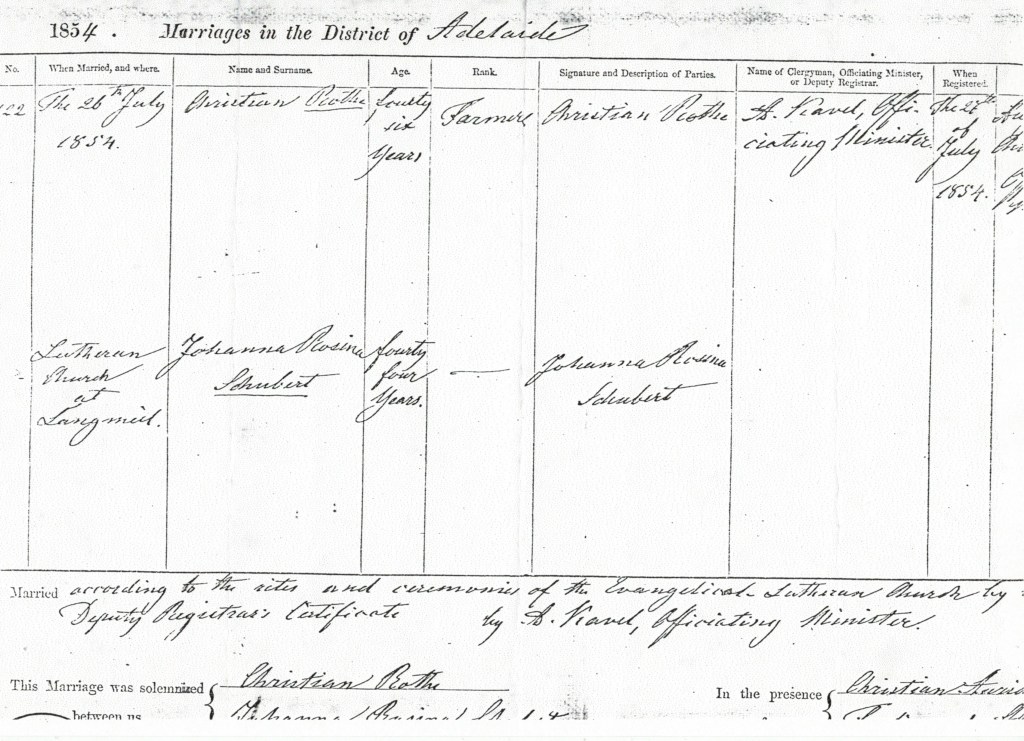 1854. Marriages in the District of Adelaide
No. When Married, and where. Name and Surname. Age. Rank. Signature and Description of Parties. Name of Clergyman, Officiating Minister, or Deputy Registrar. When Registered.
122 The 26th July Christian Rothe fourty Farmer Christian Rothe A. Kavel, Offi-
1854. six ciating Minister.
Years
The 26th
of
July
1854.
Lutheran Johanna Rosina fourty — Johanna Rosina
Church Schubert four Schubert
at Years.
Langmeil.
Married according to the rites and ceremonies of the Evangelical Lutheran Church by
Deputy Registrar's Certificate by A. Kavel, Officiating Minister.
This Marriage was solemnized { Christian Rothe In the presence { Christian
between us Johanna Rosina